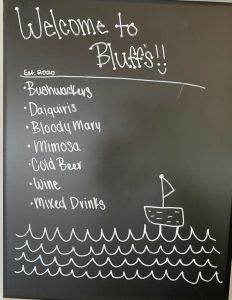 Welcome to
Bluff's!!
Est. 2020
•Bushwackers
•Daiquiris
•Bloody Mary
•Mimosa
•Cold Beer
•Wine
•Mixed Drinks